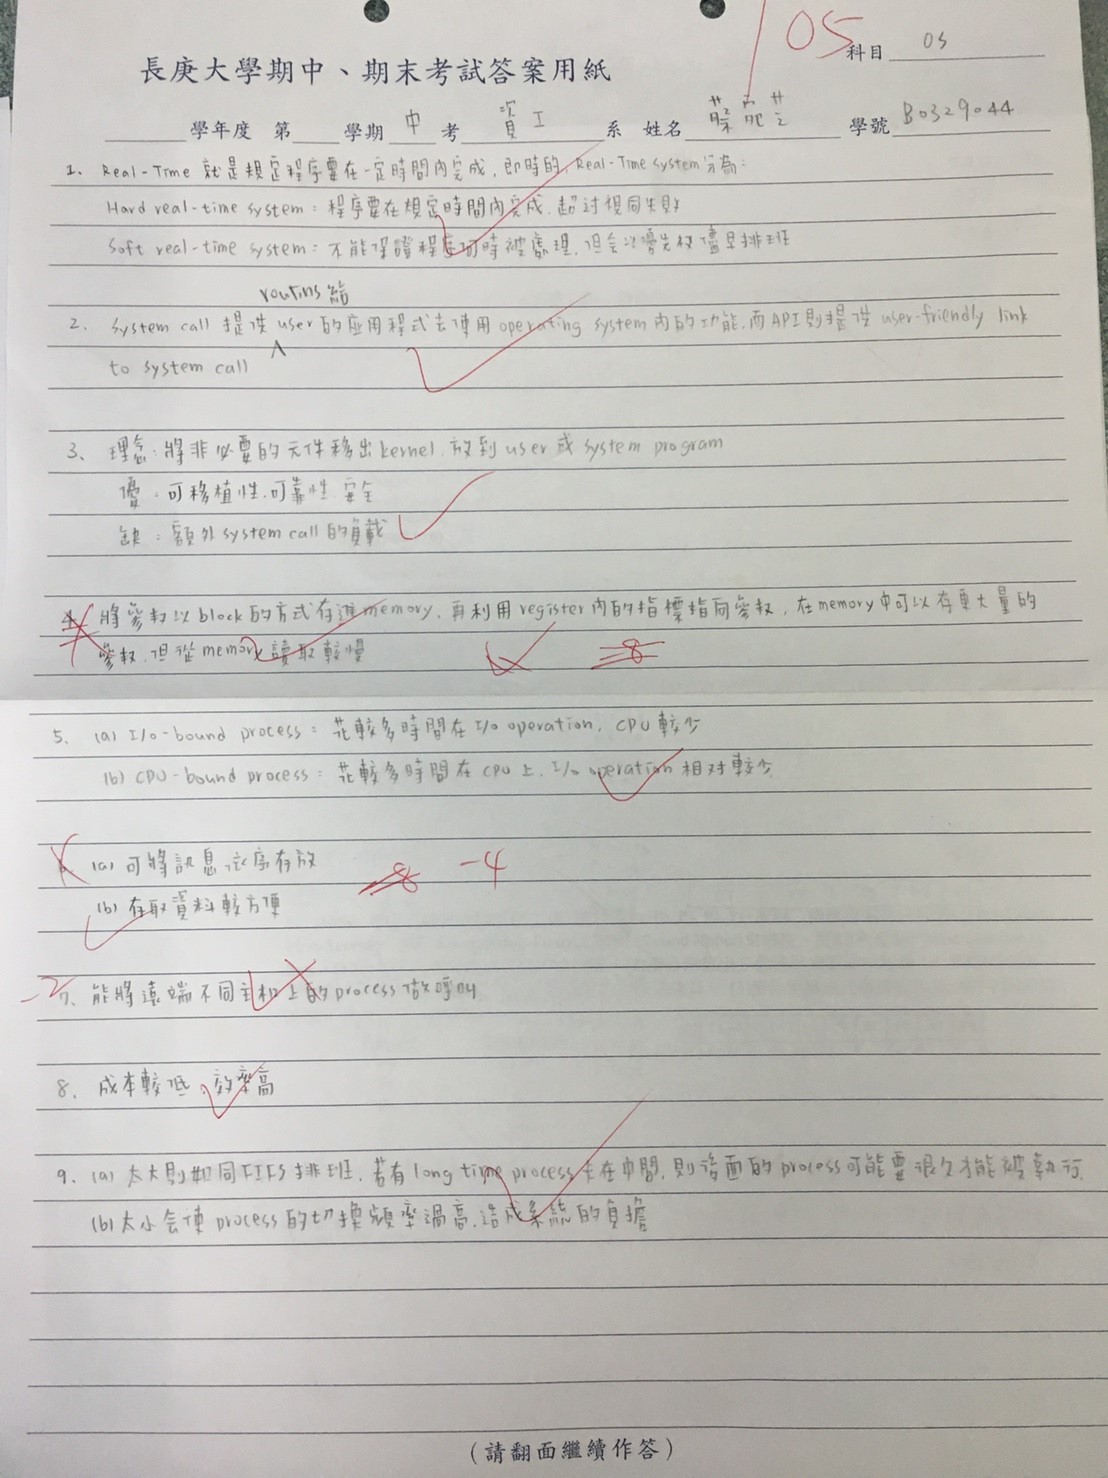 105
科目 OS
長庚大學期中、期末考試答案用紙
學年度 第 學期 中 考 資工 系 姓名 蔡宛芝 學號 B0329044
1. Real-Time 就是規定程序要在一定時間內完成,即時的,Real-Time system 分為:
Hard real-time system:程序要在規定時間內完成,超過視同失敗
Soft real-time system:不能保證程序何時被處理,但會以優先權儘早排班
routins 給
2. System call 提供 user 的應用程式去使用 operating system 內的功能,而API則提供 user-friendly link
to system call
3、 理念:將非必要的元件移出 kernel,放到 user 或 system program
優:可移植性.可靠性 安全
缺:額外 system call 的負載
4. 將參數以 block 的方式存進 memory,再利用 register 內的指標指向參數,在 memory 中可以存更大量的
參數,但從 memory 讀取較慢
-8
5. (a) I/o-bound process:花較多時間在 I/o operation, CPU 較少
(b) CPU-bound process:花較多時間在 CPU 上,I/o operation 相對較少,
(a) 可將訊息依序存放
-8 -4
(b) 存取資料較方便
-2
7、 能將遠端不同主機上的 process 做呼叫
8. 成本較低,效率高
9. (a) 太大則如同 FIFS 排班,若有 long time process 卡在中間,則後面的 process 可能要很久才能被執行,
(b) 太小會使 process 的切換頻率過高,造成系統的負擔
(請翻面繼續作答)